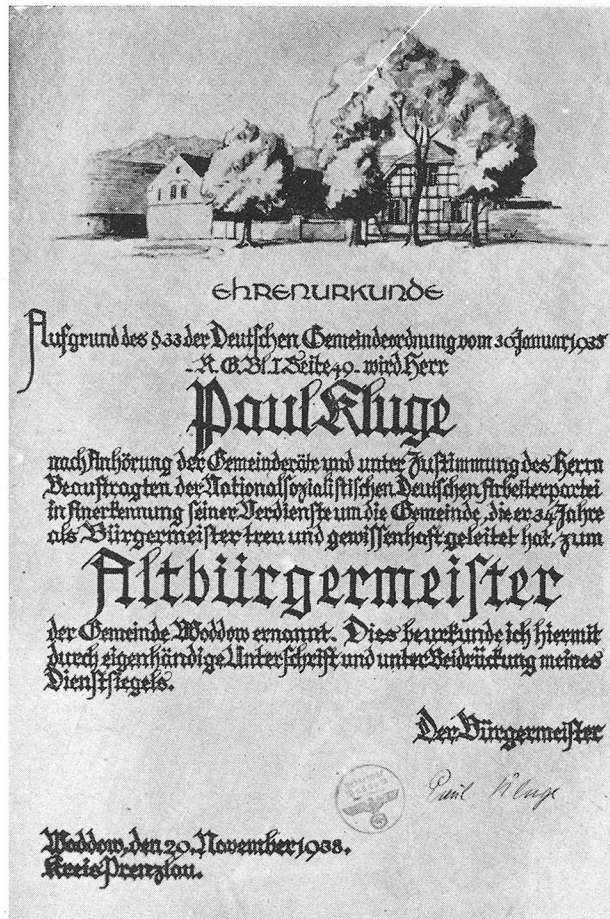 EHRENURKUNDE
Aufgrund des § 33 der Deutschen Gemeindeordnung vom 30. Januar 1935
- R. G. Bl. I. Seite 49 - wird Herr
Paul Kluge
nach Anhörung der Gemeinderäte und unter Zustimmung des Herrn
Beauftragten der Nationalsozialistischen Deutschen Arbeiterpartei
in Anerkennung seiner Verdienste um die Gemeinde, die er 34 Jahre
als Bürgermeister treu und gewissenhaft geleitet hat, zum
Altbürgermeister
der Gemeinde Woddow ernannt. Dies beurkunde ich hiermit
durch eigenhändige Unterschrift und unter Beidrückung meines
Dienstsiegels.
Der Bürgermeister
Paul Kluge
Woddow, den 29. November 1938.
Kreis Prenzlau.